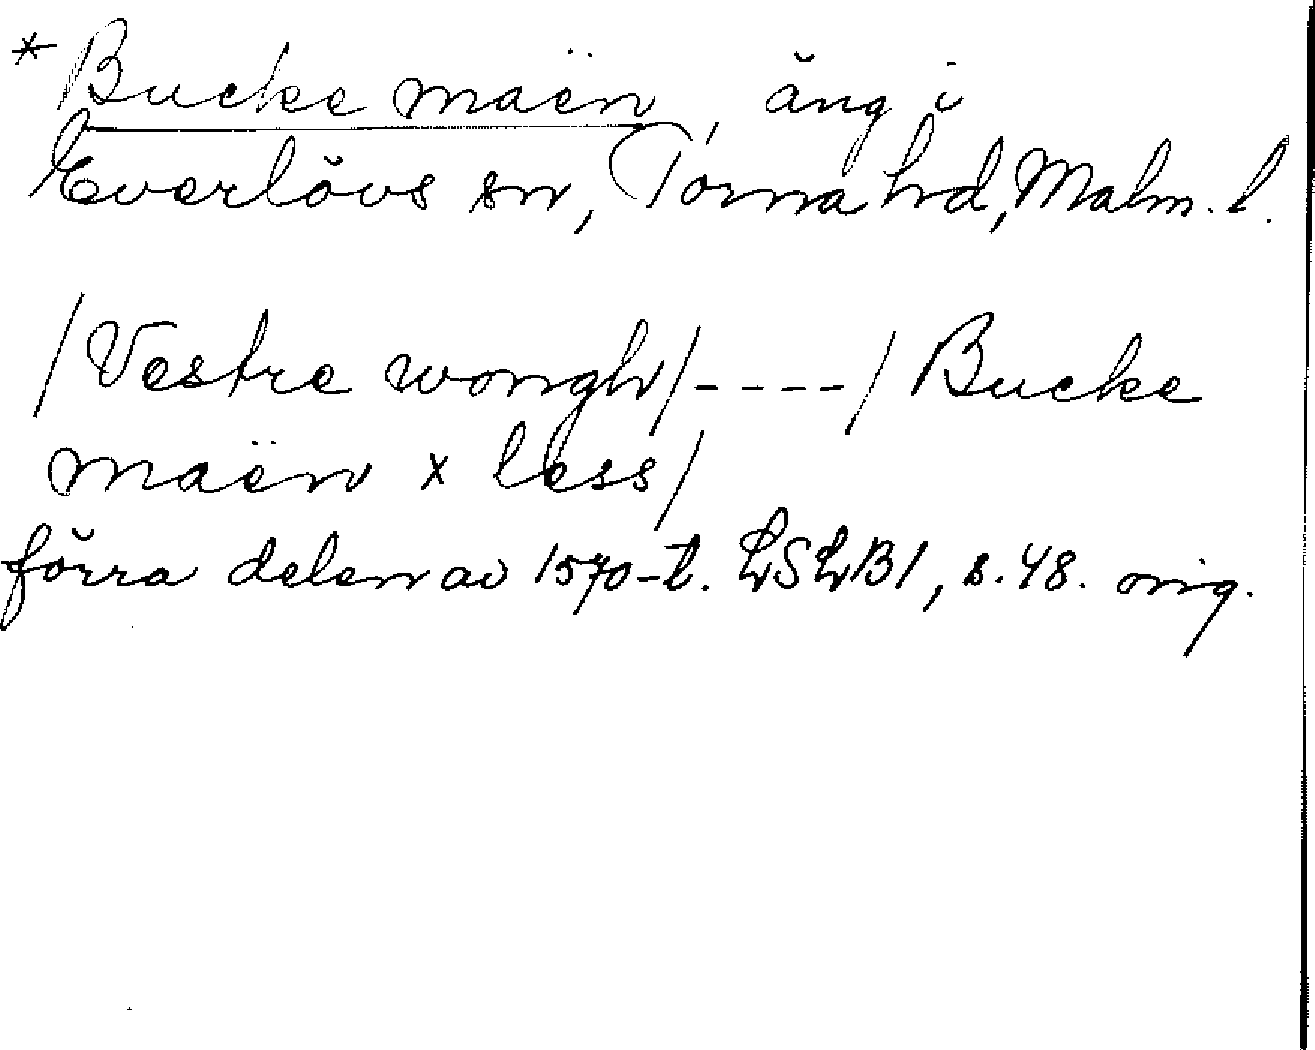 * Bucke maën, äng i
Everlövs sn, Torna hd, Malm. l.
/Vestre wongh/----/Bucke
maën x less/
förra delen av 1570-t. LSLB1, s. 48. orig.